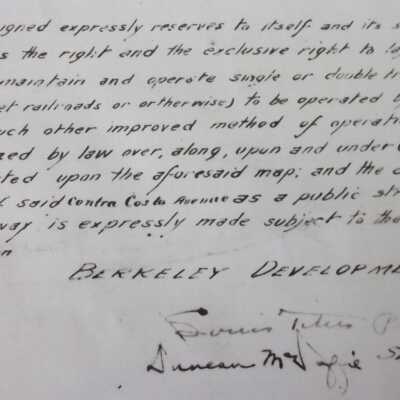 igned expressly reserves to itself and its s
s the right and the exclusive right to la
maintain and operate single or double tr
et railroads or ortherwise) to be operated b
uch other improved method of operati
zed by law over, along, upon and under
ted upon the aforesaid map; and the d
said Contra Costa Avenue as a public str
way is expressly made subject to the
n
BERKELEY DEVELOPME
Louis Titus P
Duncan McDuffie S